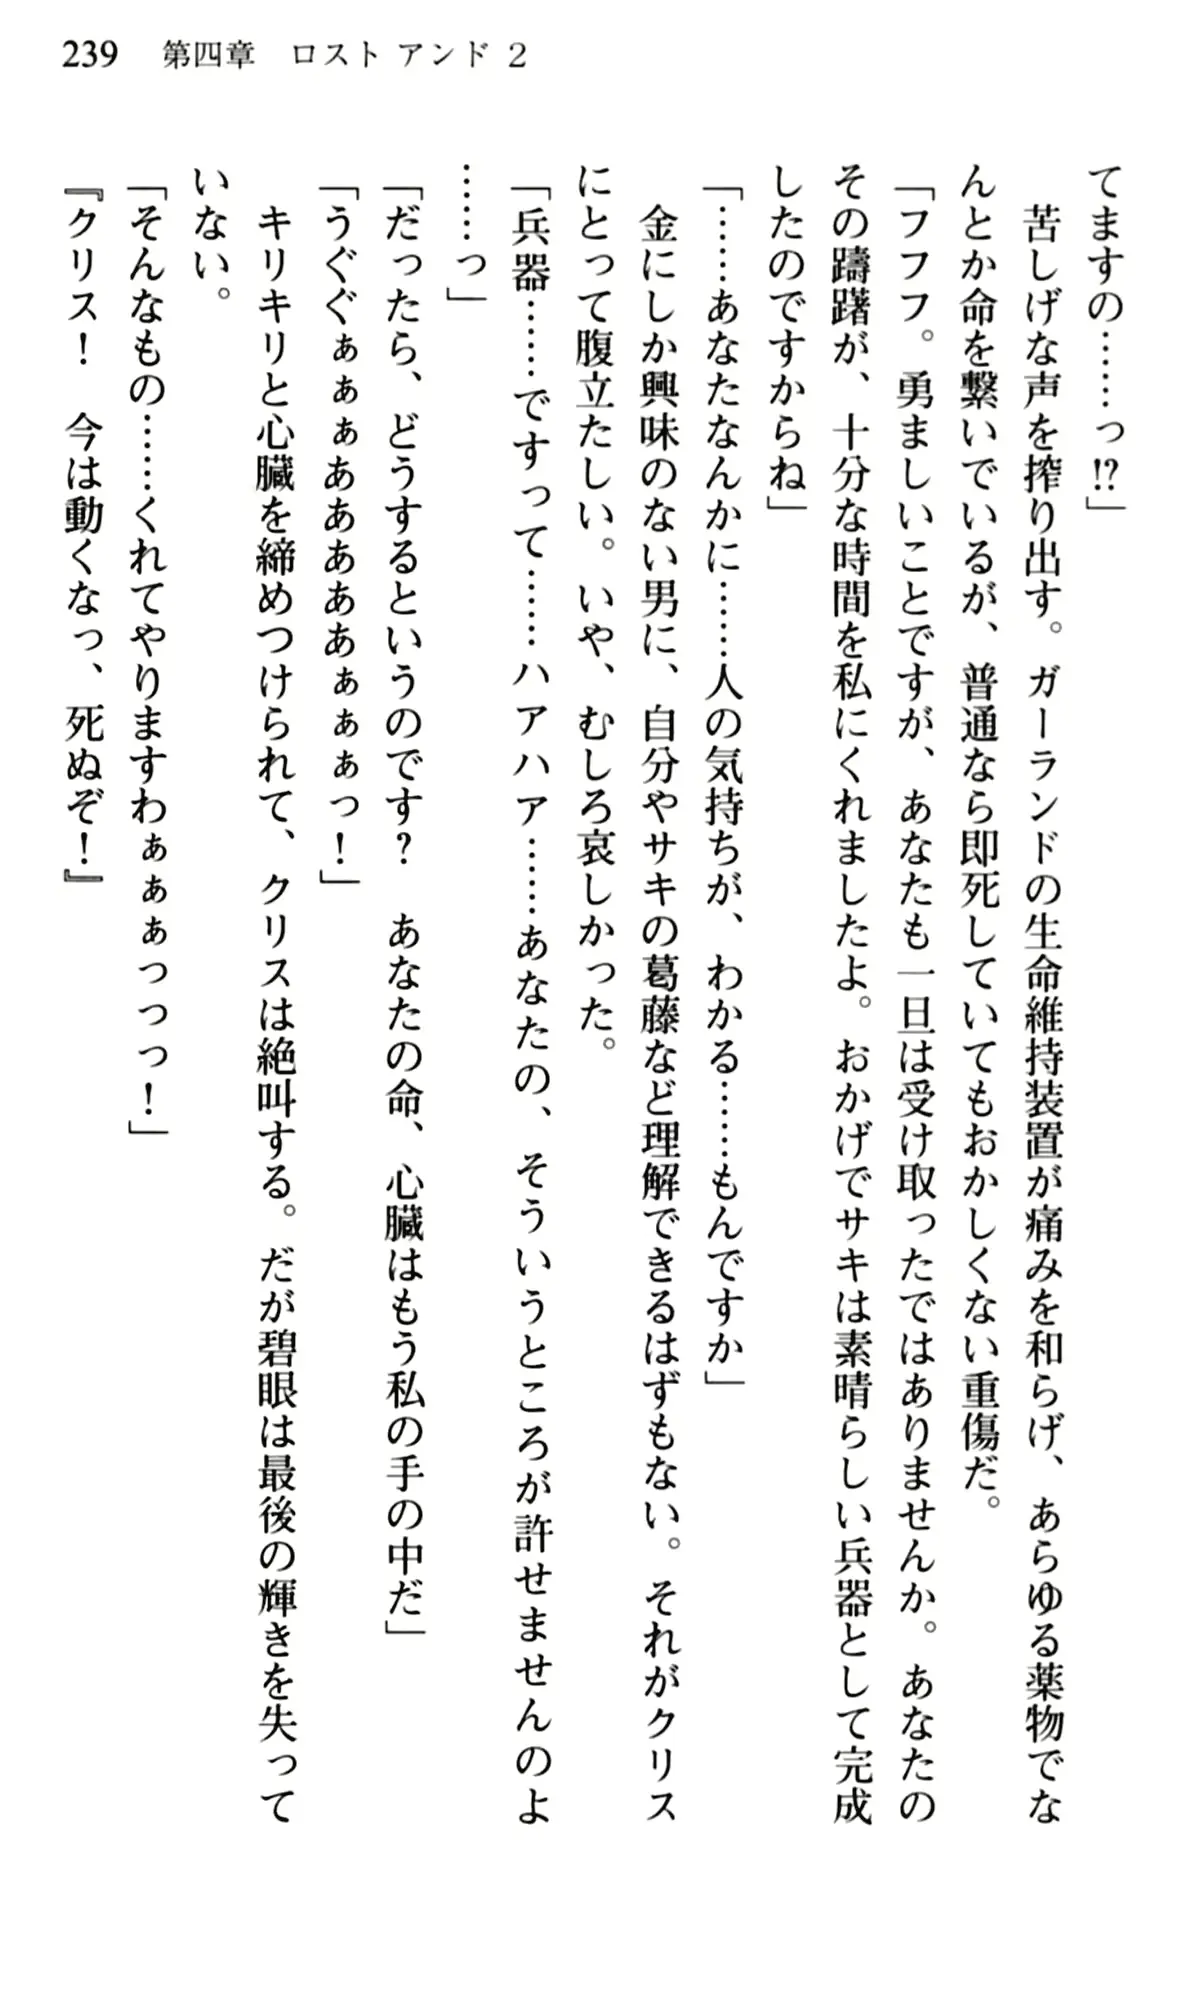 239　第四章　ロスト アンド 2
てますの……っ!?」
　苦しげな声を搾り出す。ガーランドの生命維持装置が痛みを和らげ、あらゆる薬物でな
んとか命を繋いでいるが、普通なら即死していてもおかしくない重傷だ。
「フフフ。勇ましいことですが、あなたも一旦は受け取ったではありませんか。あなたの
その躊躇が、十分な時間を私にくれましたよ。おかげでサキは素晴らしい兵器として完成
したのですからね」
「……あなたなんかに……人の気持ちが、わかる……もんですか」
　金にしか興味のない男に、自分やサキの葛藤など理解できるはずもない。それがクリス
にとって腹立たしい。いや、むしろ哀しかった。
「兵器……ですって……ハアハア……あなたの、そういうところが許せませんのよ
……っ」
「だったら、どうするというのです？　あなたの命、心臓はもう私の手の中だ」
「うぐぐぁぁぁあああああぁぁぁっ！」
　キリキリと心臓を締めつけられて、クリスは絶叫する。だが碧眼は最後の輝きを失って
いない。
「そんなもの……くれてやりますわぁぁぁっっっ！」
『クリス！　今は動くなっ、死ぬぞ！』